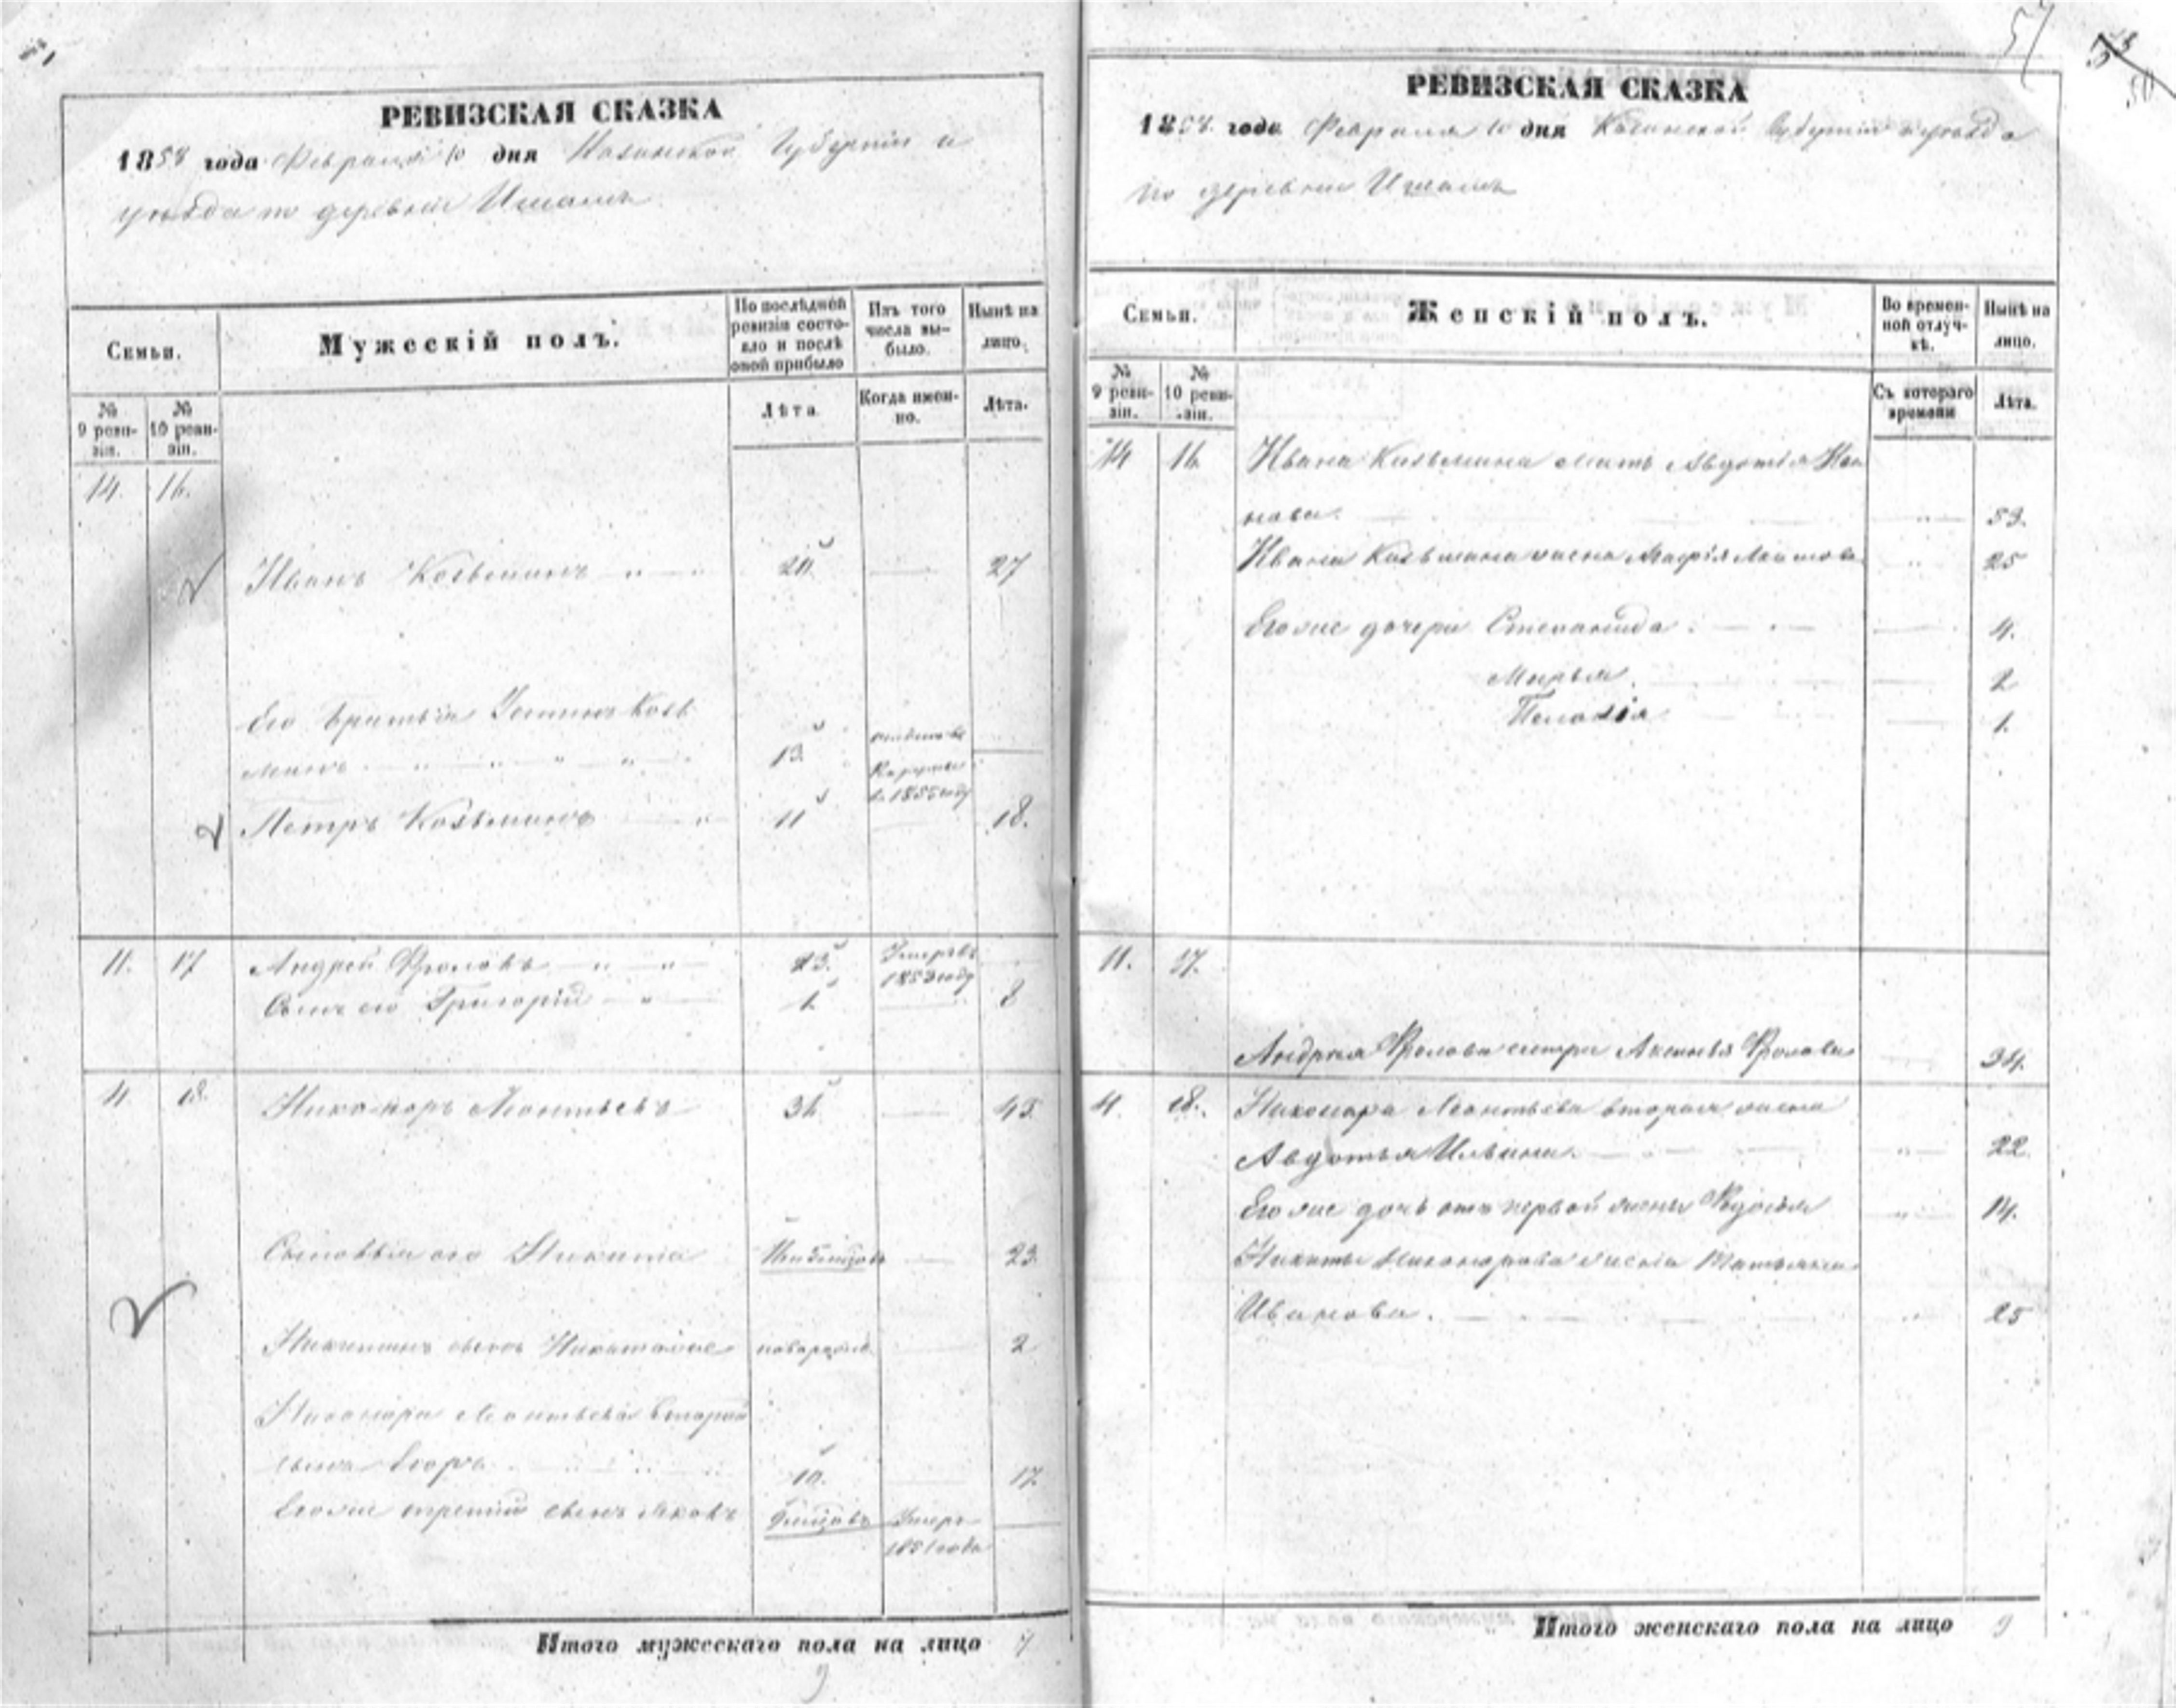 РЕВИЗСКАЯ СКАЗКА
1858 года Февраля 10 дня Казанской Губерніи и
уѣзда по деревни
Семьи.
Мужескій полъ.
По послѣдней ревизіи состояло и послѣ оной прибыло
Изъ того числа выбыло.
Нынѣ на лицо.
№ 9 ревизіи.
№ 10 ревизіи.
Лѣта
Когда именно.
Лѣта.
14. 16.
Иванъ Козьминъ 20. 27
Его братья Козь
минъ 13.
въ 1855 году
Петръ Козьминъ 11 18.
11. 17 Андрей Фроловъ 23. Умеръ въ
1853 году
Сынъ его Григорій 1. 8
4. 18. Никаноръ Леонтьевъ 36 43.
Сыновья его Никита 23.
Никитинъ сынъ новорожд. 2
Никанора Леонтьева второй
сынъ Егоръ 10. 17.
Егоже третій сынъ Яковъ Умеръ
1851 года
Итого мужескаго пола на лицо 7
9
57
50
РЕВИЗСКАЯ СКАЗКА
1858 года Февраля 10 дня Казанской Губерніи и уѣзда
по деревни
Семьи.
Женскій полъ.
Во временной отлучкѣ.
Нынѣ на лицо.
№ 9 ревизіи.
№ 10 ревизіи.
Съ котораго времени
Лѣта.
14 16. Ивана Козьмина мать Авдотья Ива
нова. 53.
Ивана Козьмина жена 25
Егоже дочери Степанида 4.
Марья 2
Пелагія 1.
11. 17.
Андрея Фролова сестра Аксинья Фролова 34.
4. 18. Никанора Леонтьева вторая жена
Авдотья Ильина. 22.
Егоже дочь отъ первой жены Федосья 14.
Никиты Никанорова жена Татьяна
Иванова. 25
Итого женскаго пола на лицо 9